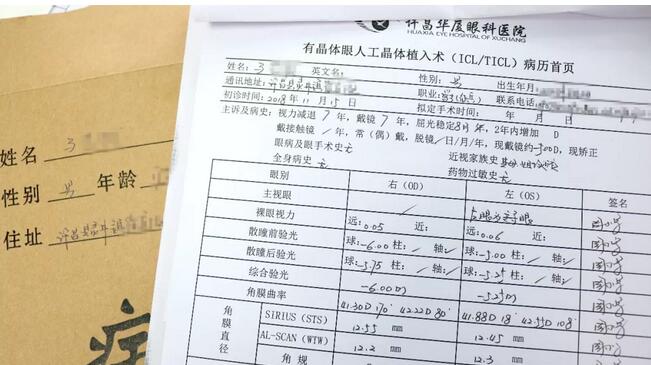 许昌华厦眼科医院
HUAXIA EYE HOSPITAL OF XUCHANG
有晶体眼人工晶体植入术（ICL/TICL）病历首页
姓名： 英文名： 性别：男 出生年月：
通讯地址：许昌县 职业： 联系电话：
初诊时间：2018年11月15日 拟定手术时间： 年 月
主诉及病史：视力减退7年，戴镜7年，屈光稳定 年，2年内增加 D
戴接触镜 年，常（偶）戴，脱镜 日/月/年，现戴镜约-500D，现矫正
眼病及眼手术史无 近视家族史
全身病史 无 药物过敏史 无
眼别 右（OD） 左（OS） 签名
主视眼 /
裸眼视力 远：0.05 近： 远：0.06 近：
散瞳前验光 球：-6.00 柱：/ 轴：/ 球：-5.00 柱：/ 轴：/
散瞳后验光 球：-5.75 柱：/ 轴：/ 球：-5.25 柱：/ 轴：/
综合验光 -6.00D -5.25D
角膜曲率 41.30D 170° 42.22D 80° 41.88D 18° 42.55D 108°
角膜直径
SIRIUS (STS) 12.55 mm 12.45 mm
AL-SCAN (WTW) 12.2 mm 12.3 mm
角 规
姓名
性别 男 年龄
住址 许昌县
病